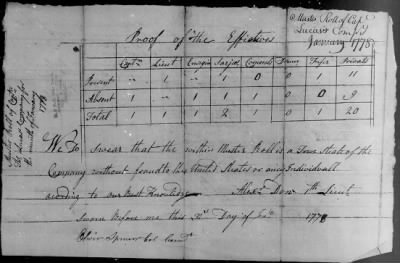 Muster Roll of Capt
Lucas's Comp'y
January 1778
Proof of the Effectives
Capt Lieut Ensign Serjts Corporals Drum Fifer Privates
Present " 1 1 1 0 0 1 11
Absent 1 " 1 0 0 9
Total 1 1 1 2 1 20
We Do Swear that the within Muster Roll is a True State of the
Company without fraud to the United States or any Individuall
acording to our Best Knowledge Alexr Dow 1st Lieut
Sworn Before me this Day of 1778
Oliver Spencer Col
Muster Roll of Capt
Company for
the month of January
1778